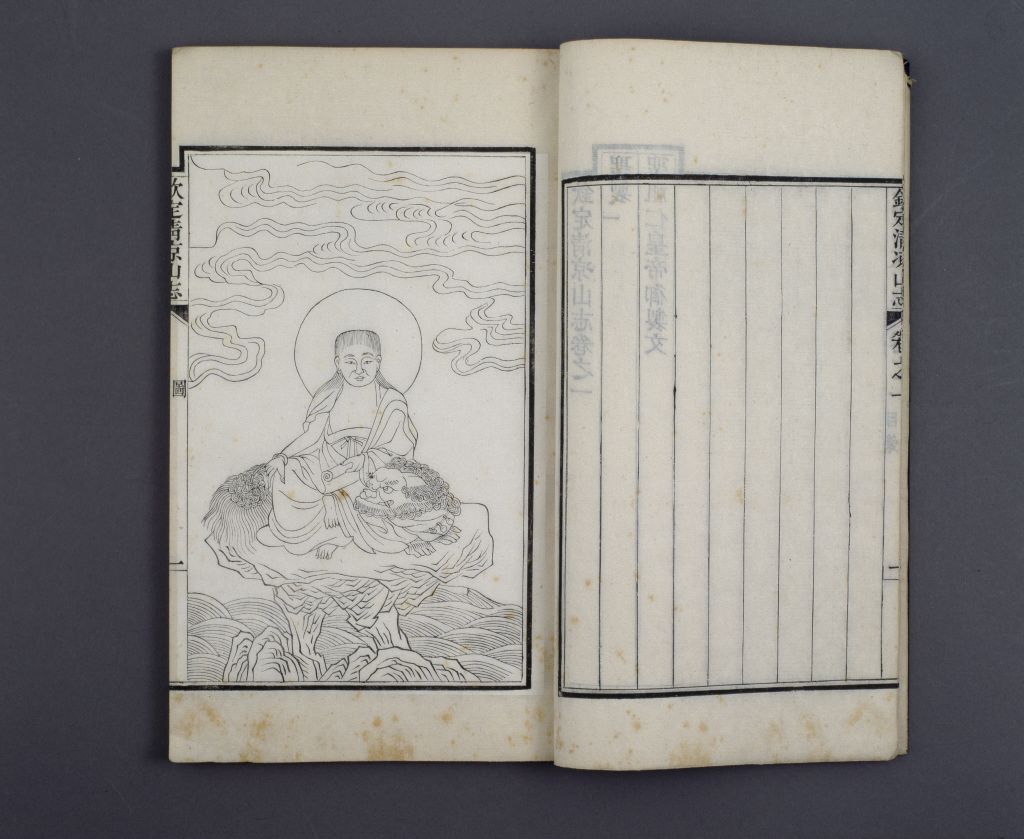 欽定清凉山志
卷之一
欽定清凉山志卷之一
聖製一
聖祖仁皇帝御製文
欽定清凉山志
圖
一